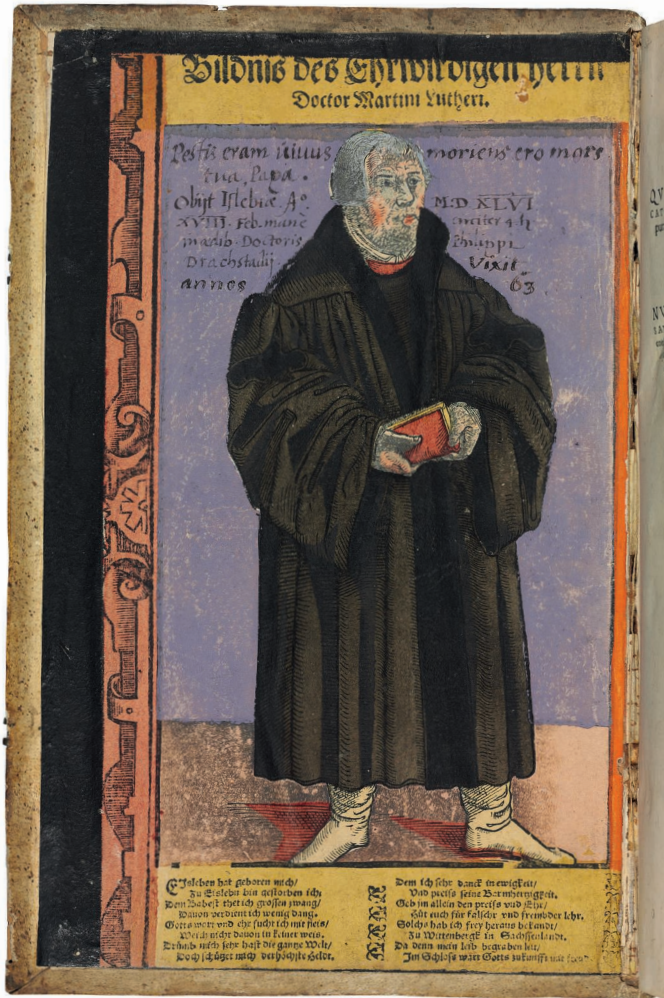 Bildnis des Ehrwirdigen Herrn
Doctor Martini Lutheri.
Pestis eram uiuus moriens ero mors
tua, Papa.
Obijt Islebiæ. Aº. M:D XLVI
XVIII. Feb. mane circiter 4 h
in ædib. Doctoris Philippi
Drachstadij. Vixit
annos 63
EIsleben hat geboren mich/
Zu Eisleben bin gestorben ich;
Dem Babest thet ich grossen zwang/
Dauon verdient ich wenig danck.
Gotts wort vnd ehr sucht ich mit fleis/
Weich nicht dauon in keiner weis.
Drümb mich sehr hast die gantze Welt/
Doch schützet mich
Dem ich sehr danck in ewigkeit/
Vnd preiss seine Barmhertzigkeit.
Geb im allein den preiss vnd Ehr/
Hüt euch für falscher vnd frembder lehr.
Solchs hab ich frey heraus bekandt/
Zu Wittenbergk in Sachssenlandt.
Da denn mein leib begraben leit/
Im Schloss wart Gotts zukunfft mit